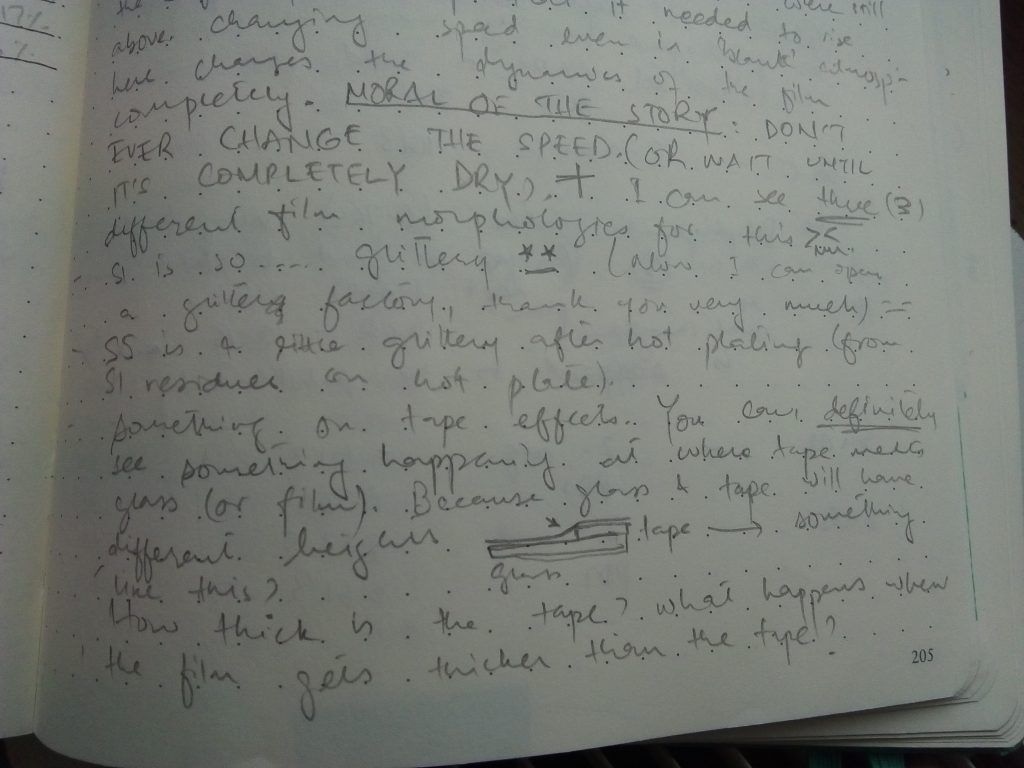 17%
%
the it needed were still
above. changing speed even in 'blank' to rise
here changes the dynamics of the film
completely. MORAL OF THE STORY: DON'T
EVER CHANGE THE SPEED. (OR WAIT UNTIL
IT'S COMPLETELY DRY) + I can see three (3)
different film morphologies for this
- S1 is so .... glittery ** (Now I can open
a glittery factory, thank you very much) ==
- S5 is a little glittery after hot plating (from
S1 residues on hot plate).
Something on tape effects. You can definitely
see something happening at where tape meets
glass (or film). Because glass & tape will have
different heights tape → something
glass
like this?
How thick is the tape? What happens when
the film gets thicker than the tape?
205